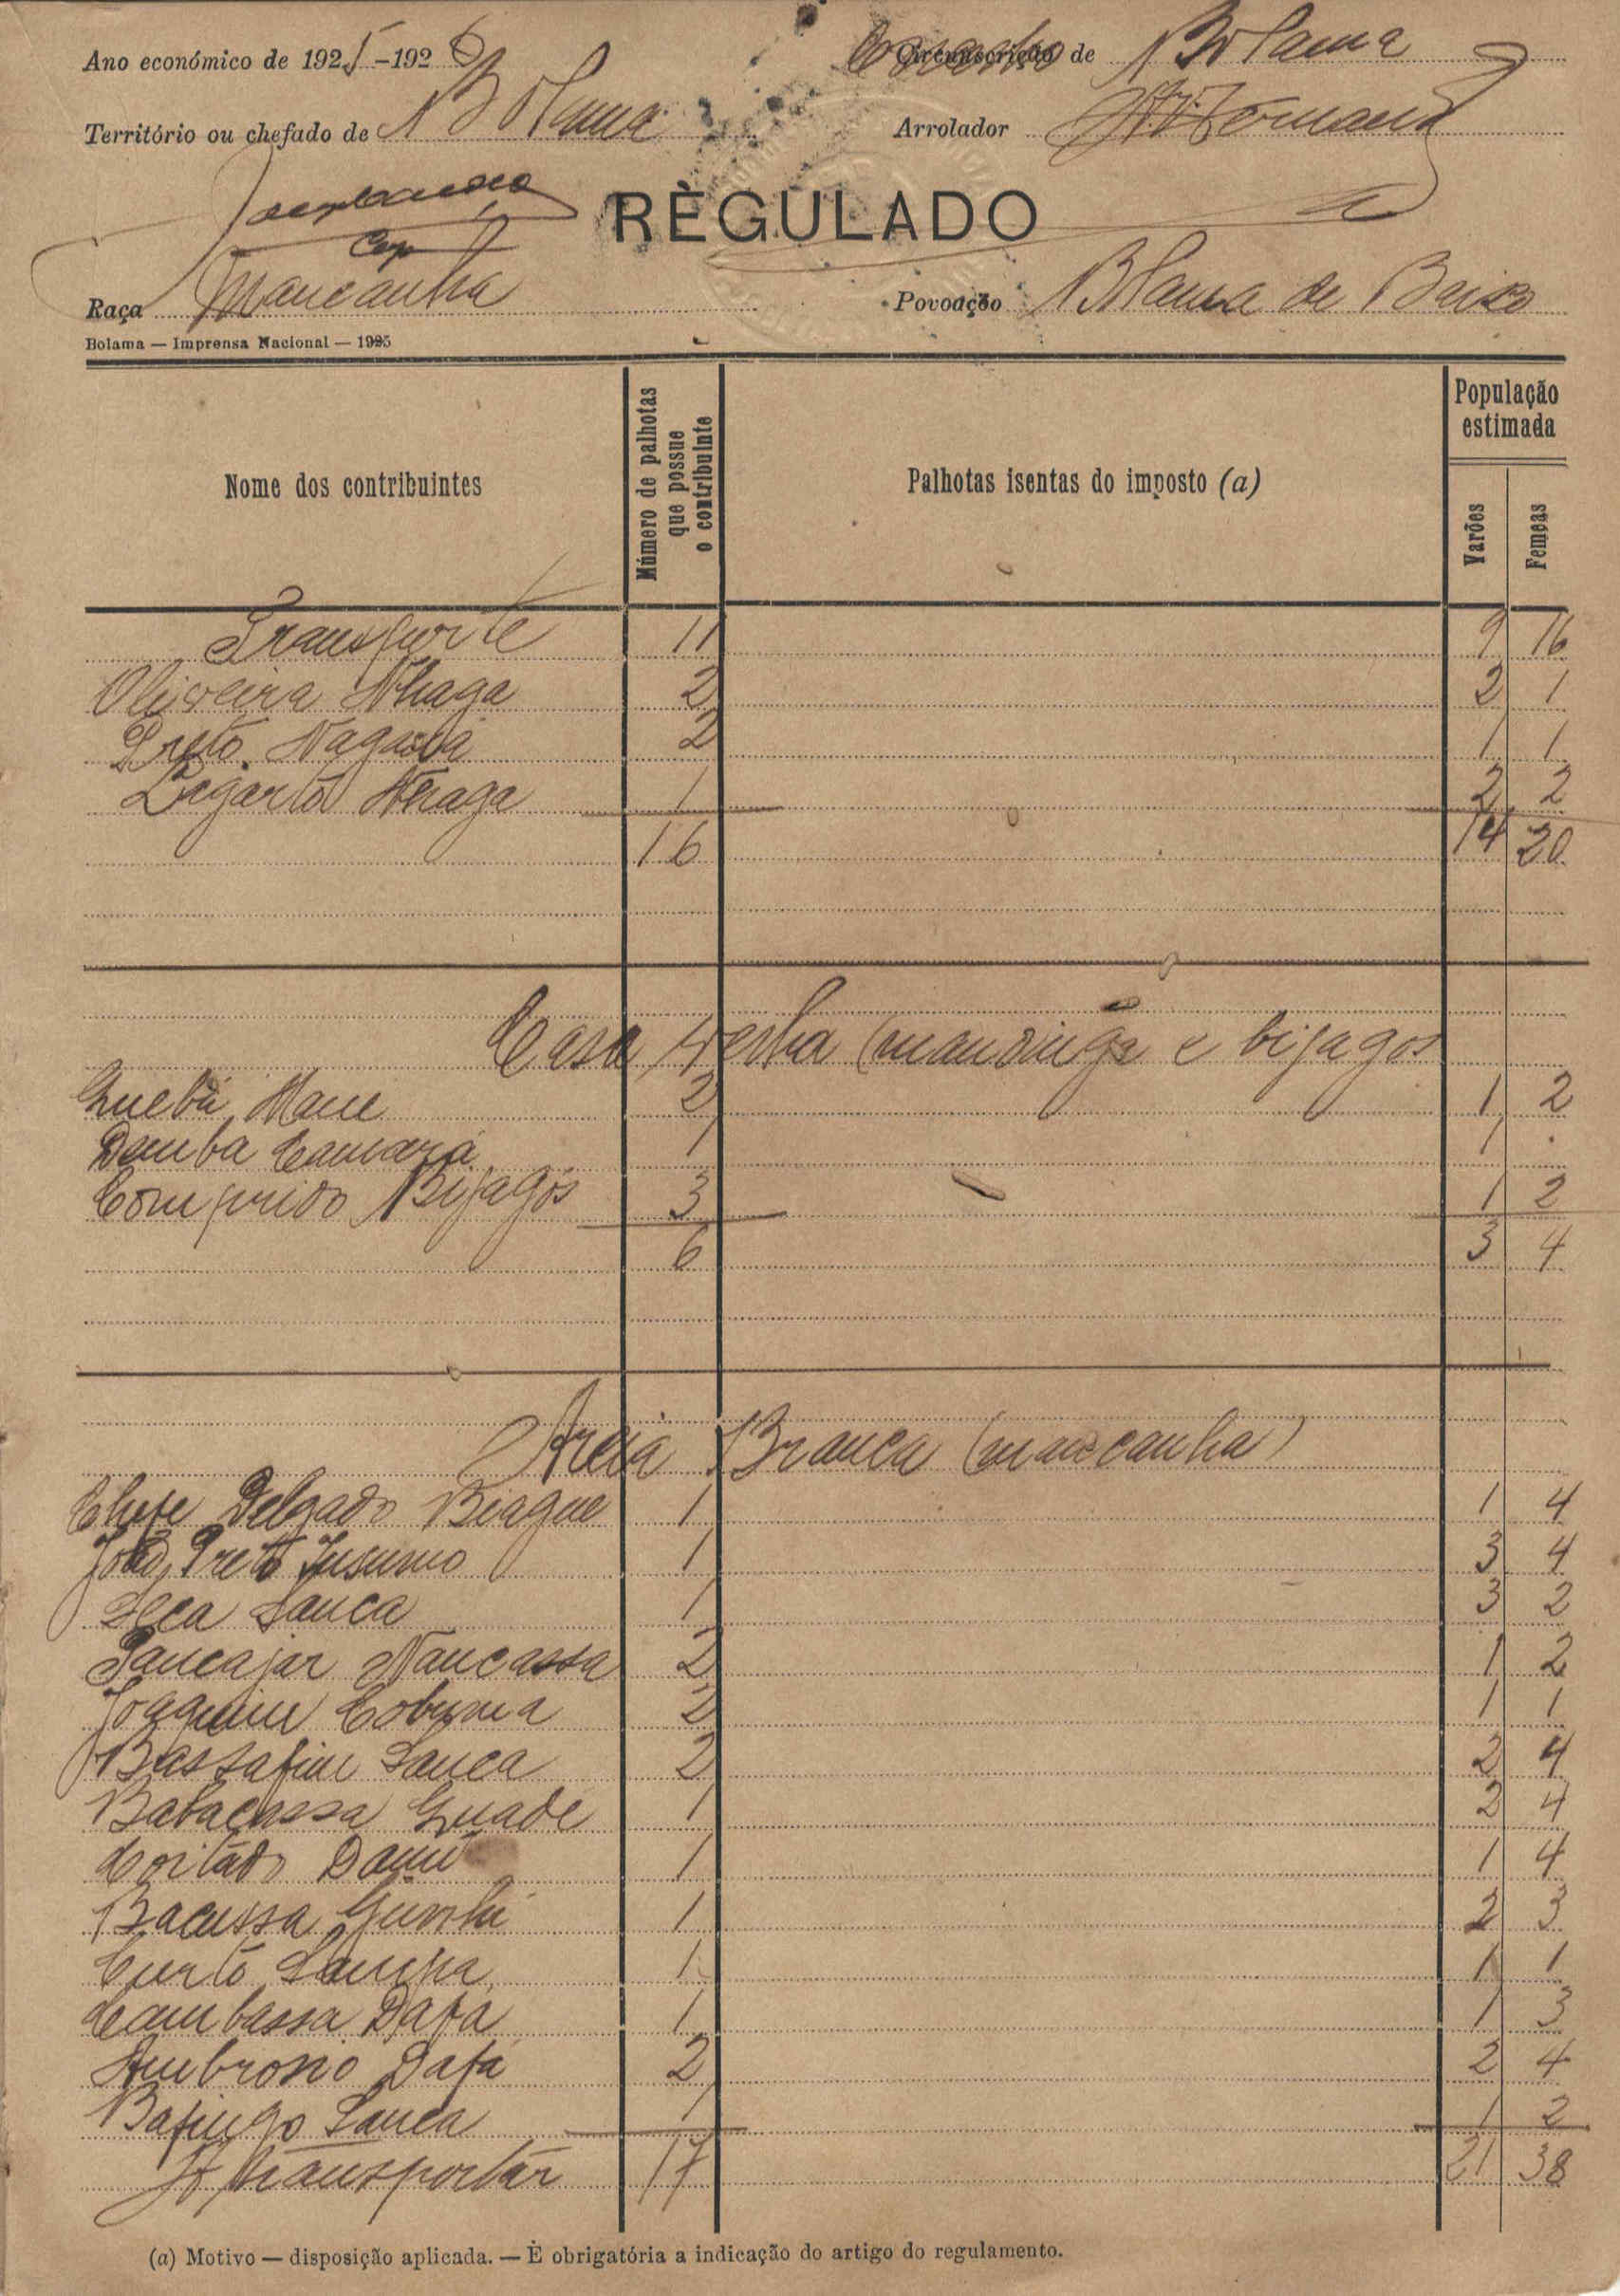 Ano económico de 1925-1926 Circunscrição de Bolama
Território ou chefado de Bolama Arrolador
RÈGULADO
Raça Mancanha Povoação Bolama de Baixo
Bolama — Imprensa Nacional — 1925
Nome dos contribuintes Número de palhotas que possue o contribuinte Palhotas isentas do imposto (a) População estimada Varões Femeas
Transporte 11 9 16
Oliveira Nhaga 2 2 1
Preto 2 1 1
Lagarto Nhaga 1 2 2
16 14 20
Casa (mandinga e bijagos
Quebá Mane 2 1 2
Demba Camará 1 1 .
Comprido Bijagós 3 1 2
6 3 4
Areia Branca (mancanha)
Chefe Delgado Biague 1 1 4
João Preto 1 3 4
Sanca 1 3 2
Nancassa 2 1 2
Joaquim 2 1 1
Bassafim Sanca 2 2 4
Guade 1 2 4
Coitado 1 1 4
Bacussa 1 2 3
Curto 1 1 1
Cambassa Dafá 1 1 3
Ambrosio Dafá 2 2 4
Bafingo Sanca 1 1 2
A transportar 17 21 38
(a) Motivo — disposição aplicada. — È obrigatória a indicação do artigo do regulamento.